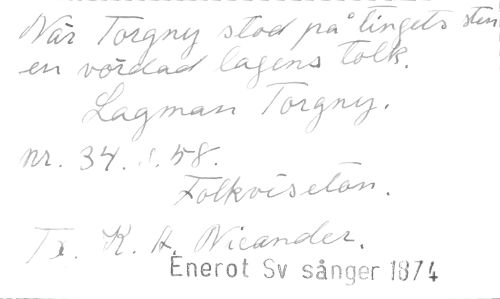 När Torgny stod på tingets sten
en vördad lagens tolk.
Lagman Torgny.
nr. 34. s. 58.
Folkviseton.
Tx. K. A. Nicander.
Enerot Sv sånger 1874